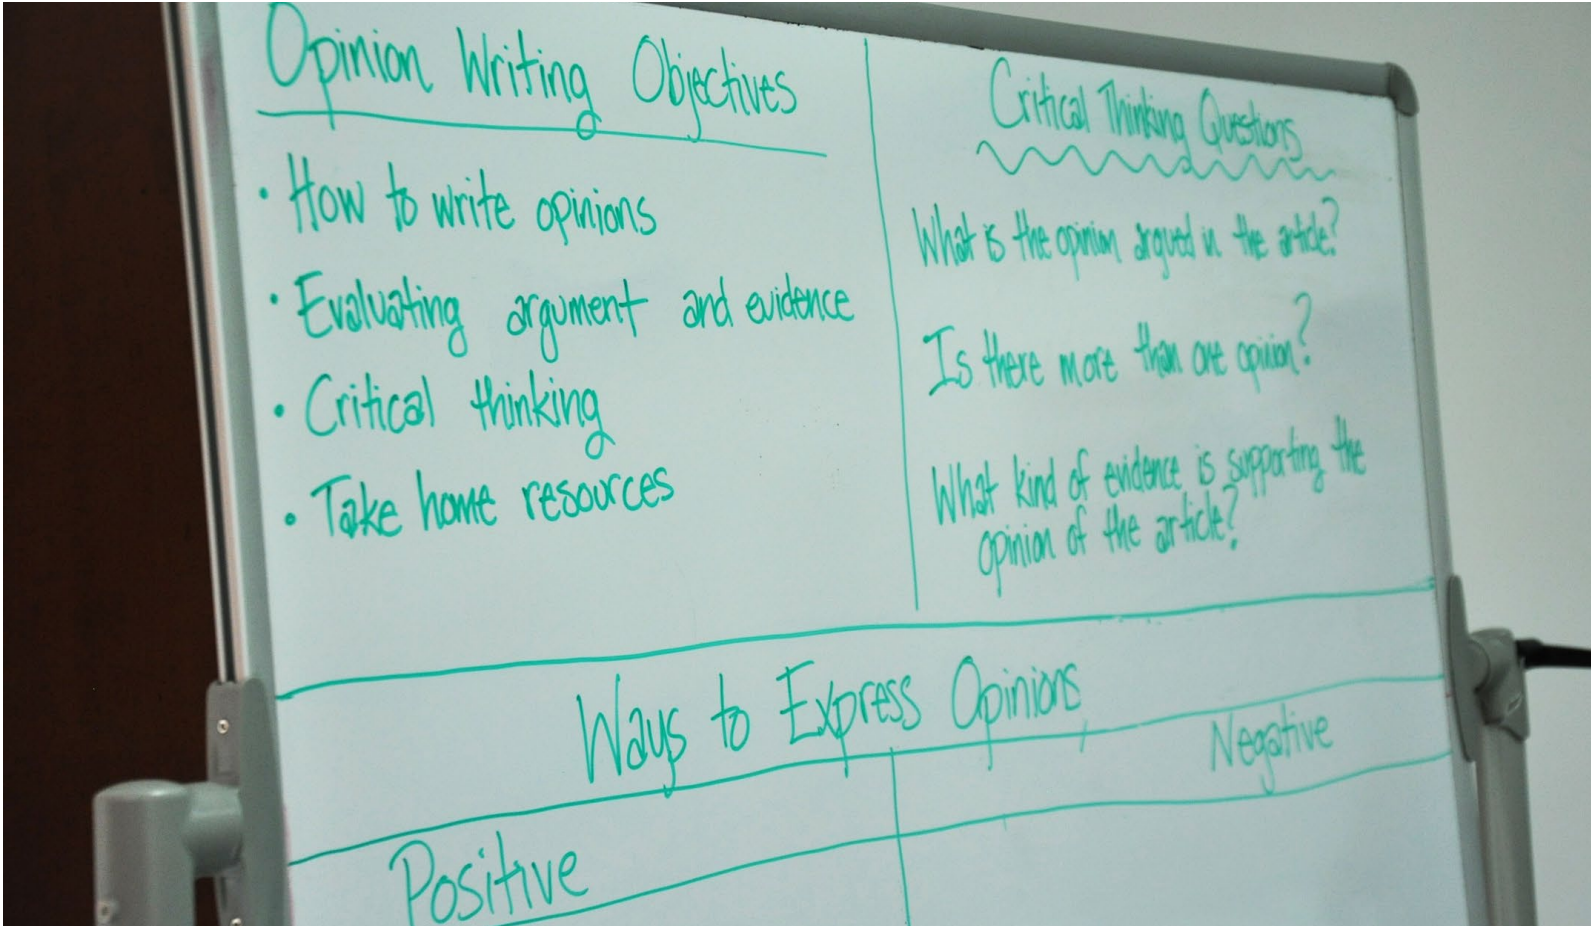 Opinion Writing Objectives
• How to write opinions
• Evaluating argument and evidence
• Critical thinking
• Take home resources
Critical Thinking Questions
What is the opinion argued in the article?
Is there more than one opinion?
What kind of evidence is supporting the
opinion of the article?
Ways to Express Opinions
Positive
Negative